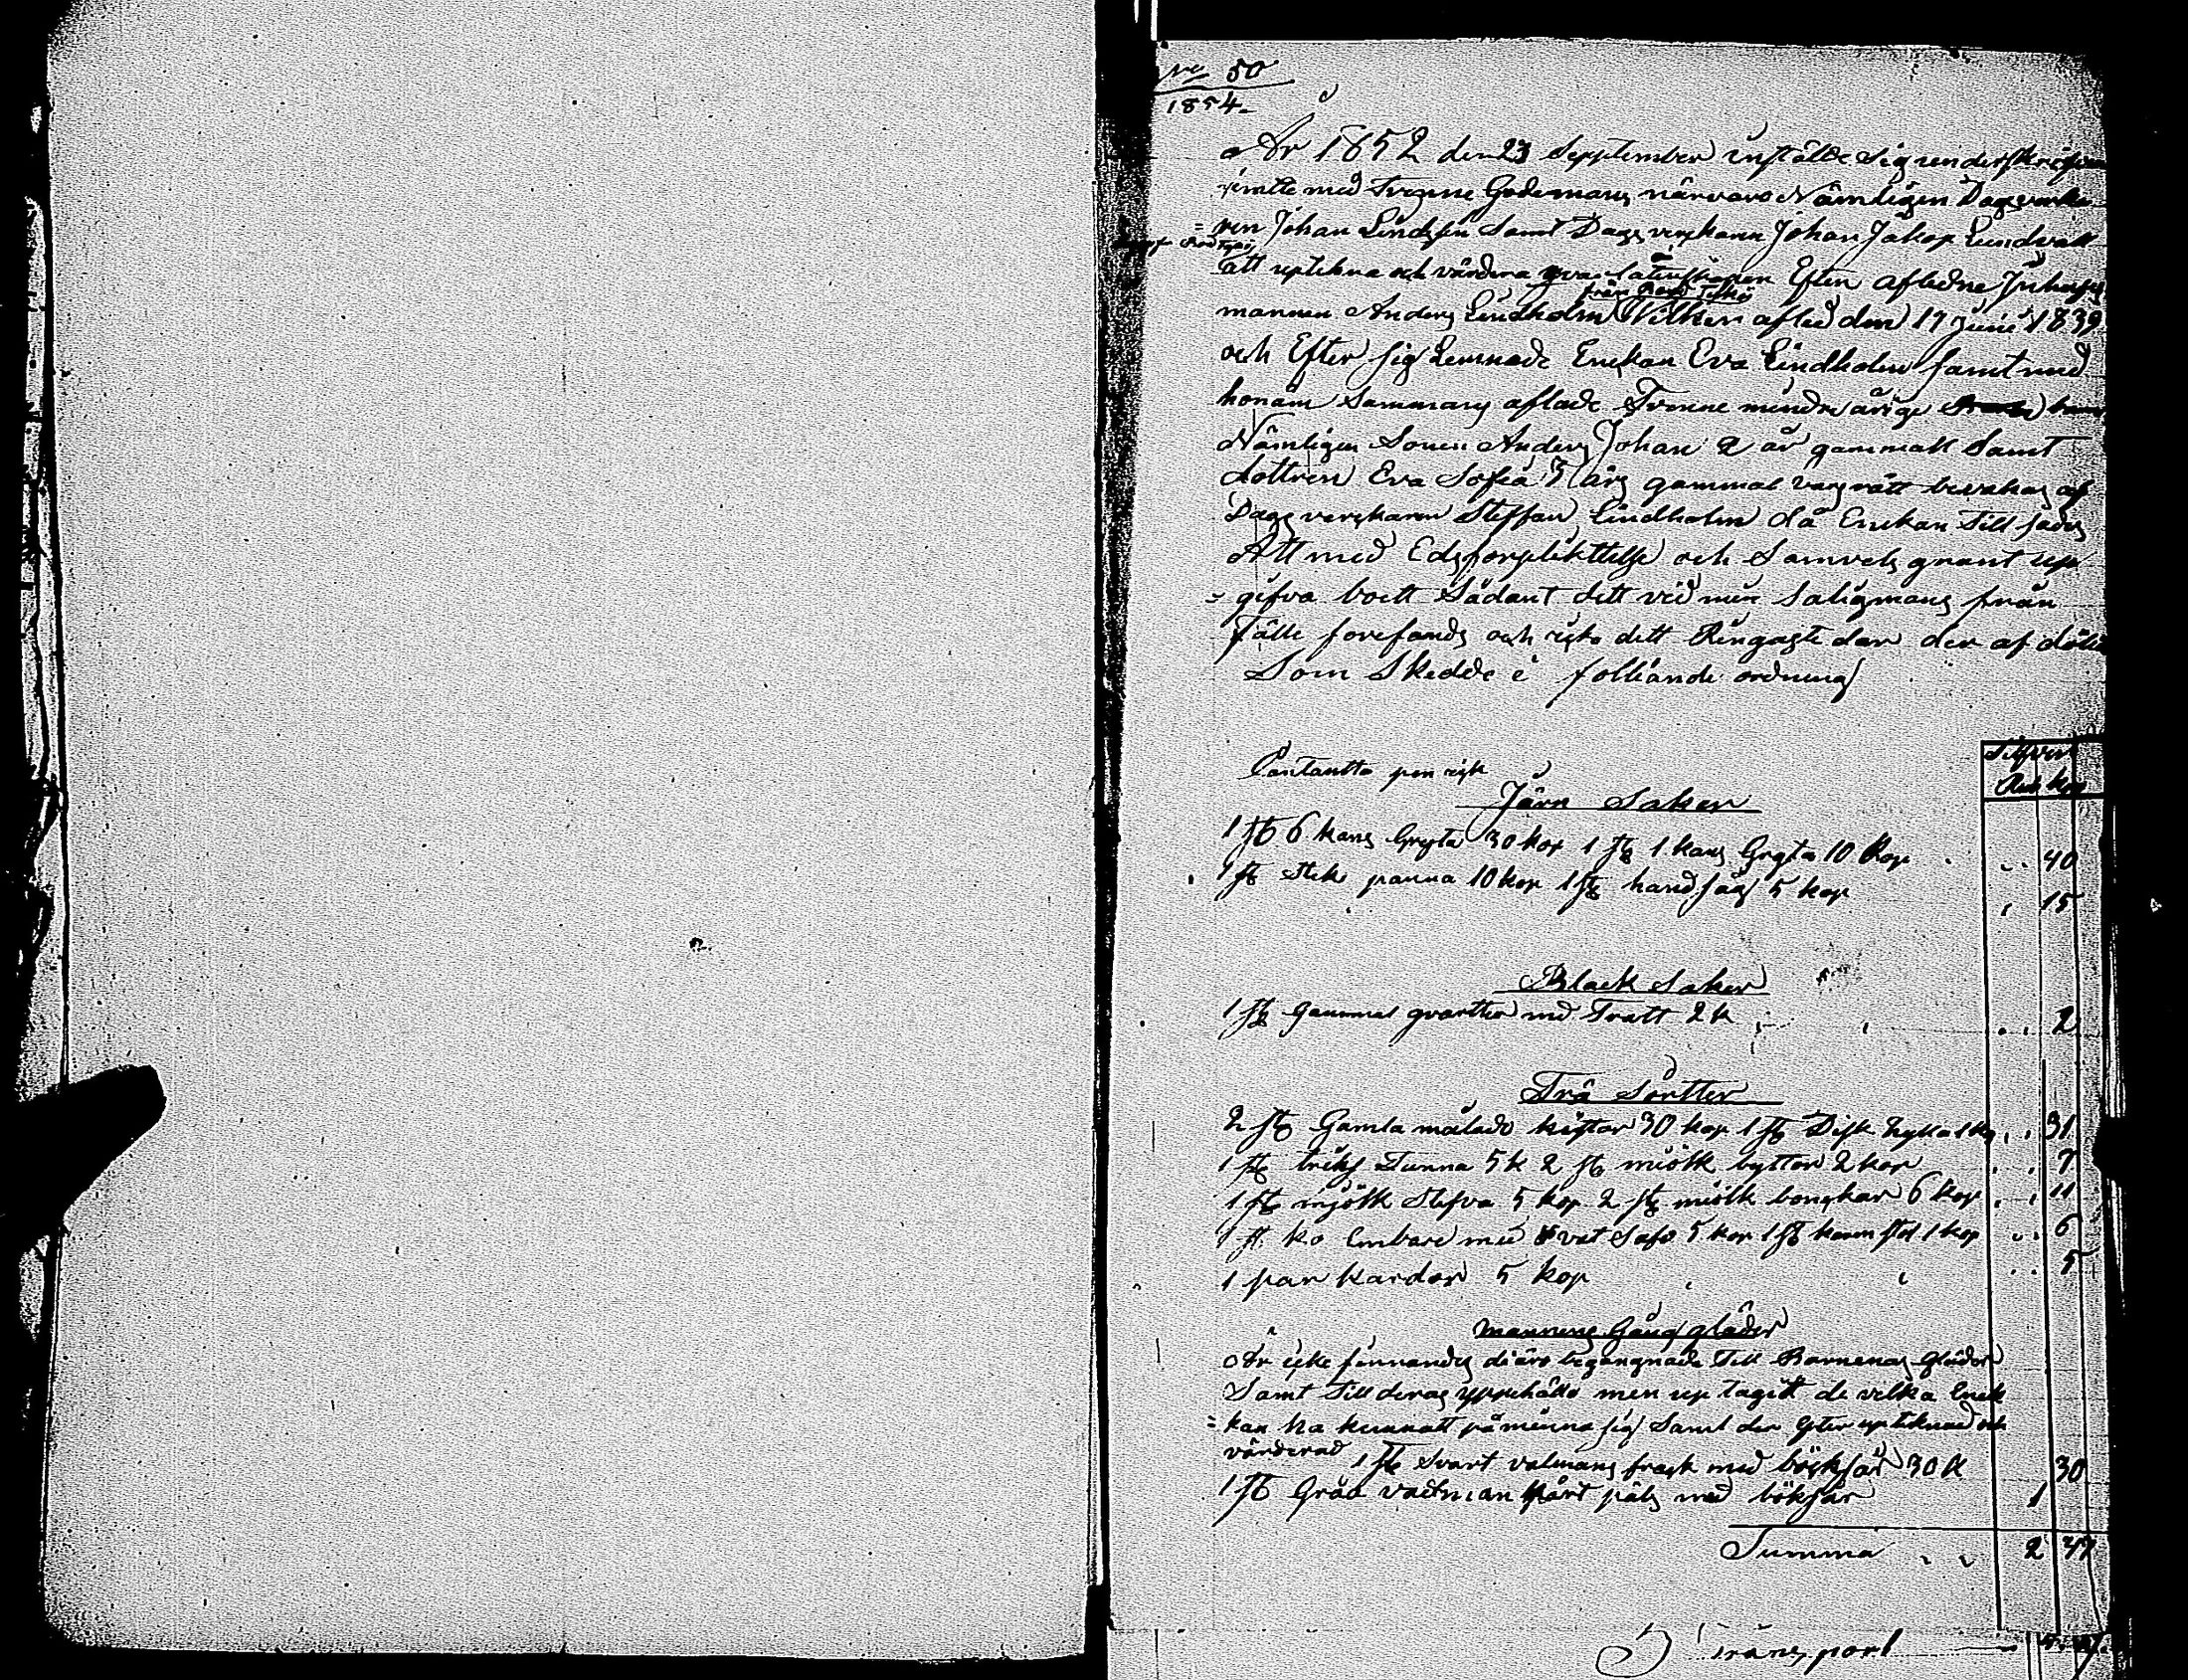 No 50
1854.
År 1852 den 23 September instälde sig underskrefven
jemte med Tvenne Godemans närvaro Nämligen Dagsverka
=ren Johan Lindfin Samt Dagsverkarn Johan Jakop Lundvall
att uptekna och värdera qvarlåtenskapen Efter aflidne Inhyses
från
mannen Anders Lindholm Vilken afled den 17 Junii 1839
och Efter sig Lemnade Enckan Eva Lindholm samt med
honäm Sammans aflade Tvenne minderårige barn
Nämligen Sonen Anders Johan 2 år gammal Samt
dottren Eva Sofia 5 års gammal vars rätt bevakas af
Dagsverkarn Steffan Lindholm då Enckan Till sades
Att med Edsförpliktellse och Samvets grant up
=gifva boett Sådant dett vid min Saligmans från
fälle forefands och icke dett Ringaste dar der af dölia
Som Skedde i folliande ordning
Silfver
Rub Kop
Contantta pen icke
Järn Saker
1 st 6 kans Gryta 30 kop 1 st 1 kans Gryta 10 Kop . . . 40
1 st Stek panna 10 kop 1 st handsåg 5 kop , 15
Bläck Saker
1 st Gammal qvartter med Tratt 2 k . . 2
Trä Sörtter
2 st Gamla målade kistor 30 kop 1 st Disk hylla 1 k . . 31
1 st briks Tunna 5 k 2 st miölk byttor 2 kop . . 7
1 st mjölk Stefva 5 kop 2 st miölk bonckar 6 kop . . 11
1 st ko Embare med 5 kop 1 st karm stol 1 kop . . 6
1 par kardor 5 kop . . 5
Mannens Gång kläder
Är icke finnandes diäro begångnade Till Barnenas kläder
Samt Till deras uppehälle men up tagitt de vilka Enck
=kan ha kunnatt påminna sig Samt der Efter uptiknad och
värderad 1 st Svart valmans frack med böcksår 30 K 30
1 st Gråa vadman päls med böksår 1
Summa . . 2 47
Transport